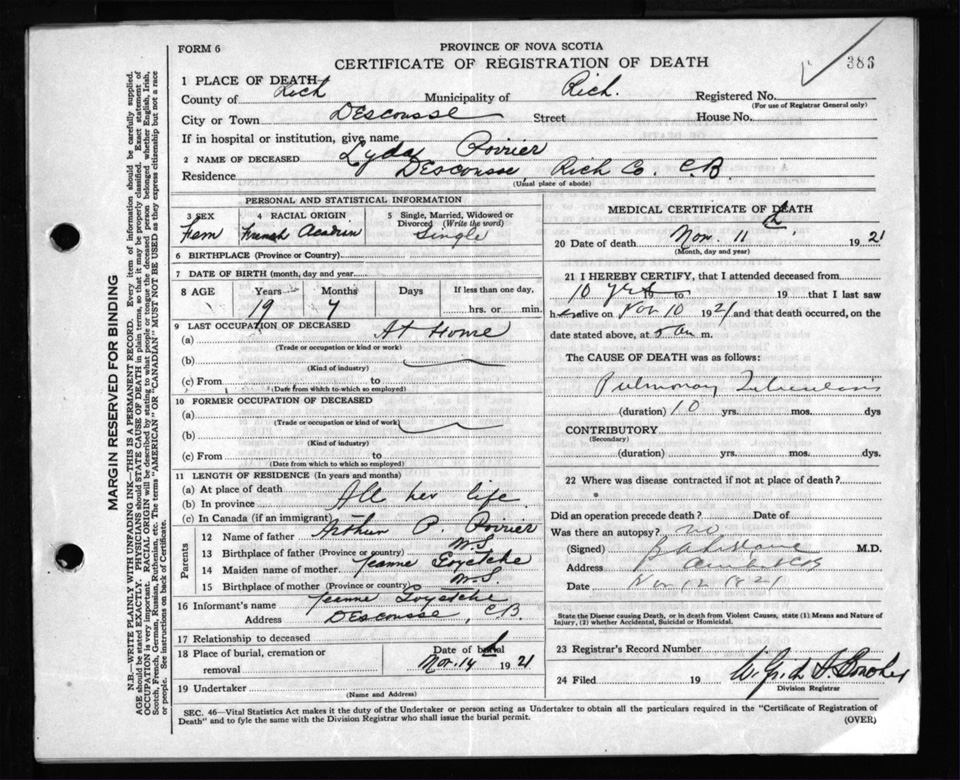 FORM 6
PROVINCE OF NOVA SCOTIA
CERTIFICATE OF REGISTRATION OF DEATH
386
1 PLACE OF DEATH
County of Rich Municipality of Rich. Registered No.
(For use of Registrar General only)
City or Town Descousse Street House No.
If in hospital or institution, give name
2 NAME OF DECEASED Lyda Poirier
Residence Descousse, Rich Co. C.B.
(Usual place of abode)
PERSONAL AND STATISTICAL INFORMATION
3 SEX 4 RACIAL ORIGIN 5 Single, Married, Widowed or Divorced (Write the word)
Fem French Single
6 BIRTHPLACE (Province or Country)
7 DATE OF BIRTH (month, day and year)
8 AGE Years Months Days If less than one day,
19 7 hrs. or min.
9 LAST OCCUPATION OF DECEASED
(a) At Home
(Trade or occupation or kind or work)
(b)
(Kind of industry)
(c) From to
(Date from which to which so employed)
10 FORMER OCCUPATION OF DECEASED
(a)
(Trade or occupation or kind of work)
(b)
(Kind of industry)
(c) From to
(Date from which to which so employed)
11 LENGTH OF RESIDENCE (In years and months)
(a) At place of death
(b) In province All her life
(c) In Canada (if an immigrant)
Parents
12 Name of father Arthur P. Poirier
13 Birthplace of father (Province or country) N.S
14 Maiden name of mother Jeanne Goyetche
15 Birthplace of mother (Province or country) N.S.
16 Informant's name Jeanne Goyetche
Address Descousse, C.B.
17 Relationship to deceased
18 Place of burial, cremation or removal
Date of burial
Nov. 14 1921
19 Undertaker
(Name and Address)
MEDICAL CERTIFICATE OF DEATH
20 Date of death Nov. 11 1921
(Month, day and year)
21 I HEREBY CERTIFY, that I attended deceased from
10 yrs 19 to 19 that I last saw
h alive on Nov 10 1921 and that death occurred, on
date stated above, at m.
The CAUSE OF DEATH was as follows:
Pulmonary Tuberculosis
(duration) 10 yrs. mos. dys
CONTRIBUTORY
(Secondary)
(duration) yrs. mos. dys.
22 Where was disease contracted if not at place of death?
Did an operation precede death? Date of
Was there an autopsy? no
(Signed) M.D.
Address
Date Nov 12 1921
State the Disease causing Death, or in death from Violent Causes, state (1) Means and Nature of Injury, (2) whether Accidental, Suicidal or Homicidal.
23 Registrar's Record Number
24 Filed 19
Division Registrar
SEC. 46—Vital Statistics Act makes it the duty of the Undertaker or person acting as Undertaker to obtain all the particulars required in the "Certificate of Registration of
Death" and to fyle the same with the Division Registrar who shall issue the burial permit.
(OVER)
MARGIN RESERVED FOR BINDING
N.B.—WRITE PLAINLY WITH UNFADING INK—THIS IS A PERMANENT RECORD. Every item of information should be carefully supplied.
AGE should be stated EXACTLY. PHYSICIANS should STATE CAUSE OF DEATH in plain terms, so that it may be properly classified. Exact statement of
OCCUPATION is very important. RACIAL ORIGIN will be described by stating to what people or tongue the deceased person belonged whether English, Irish,
Scotch, French, German, Russian, Ruthenian, etc. The terms "AMERICAN" OR "CANADIAN" MUST NOT BE USED as they express citizenship but not a race
or people. See instructions on back of Certificate.